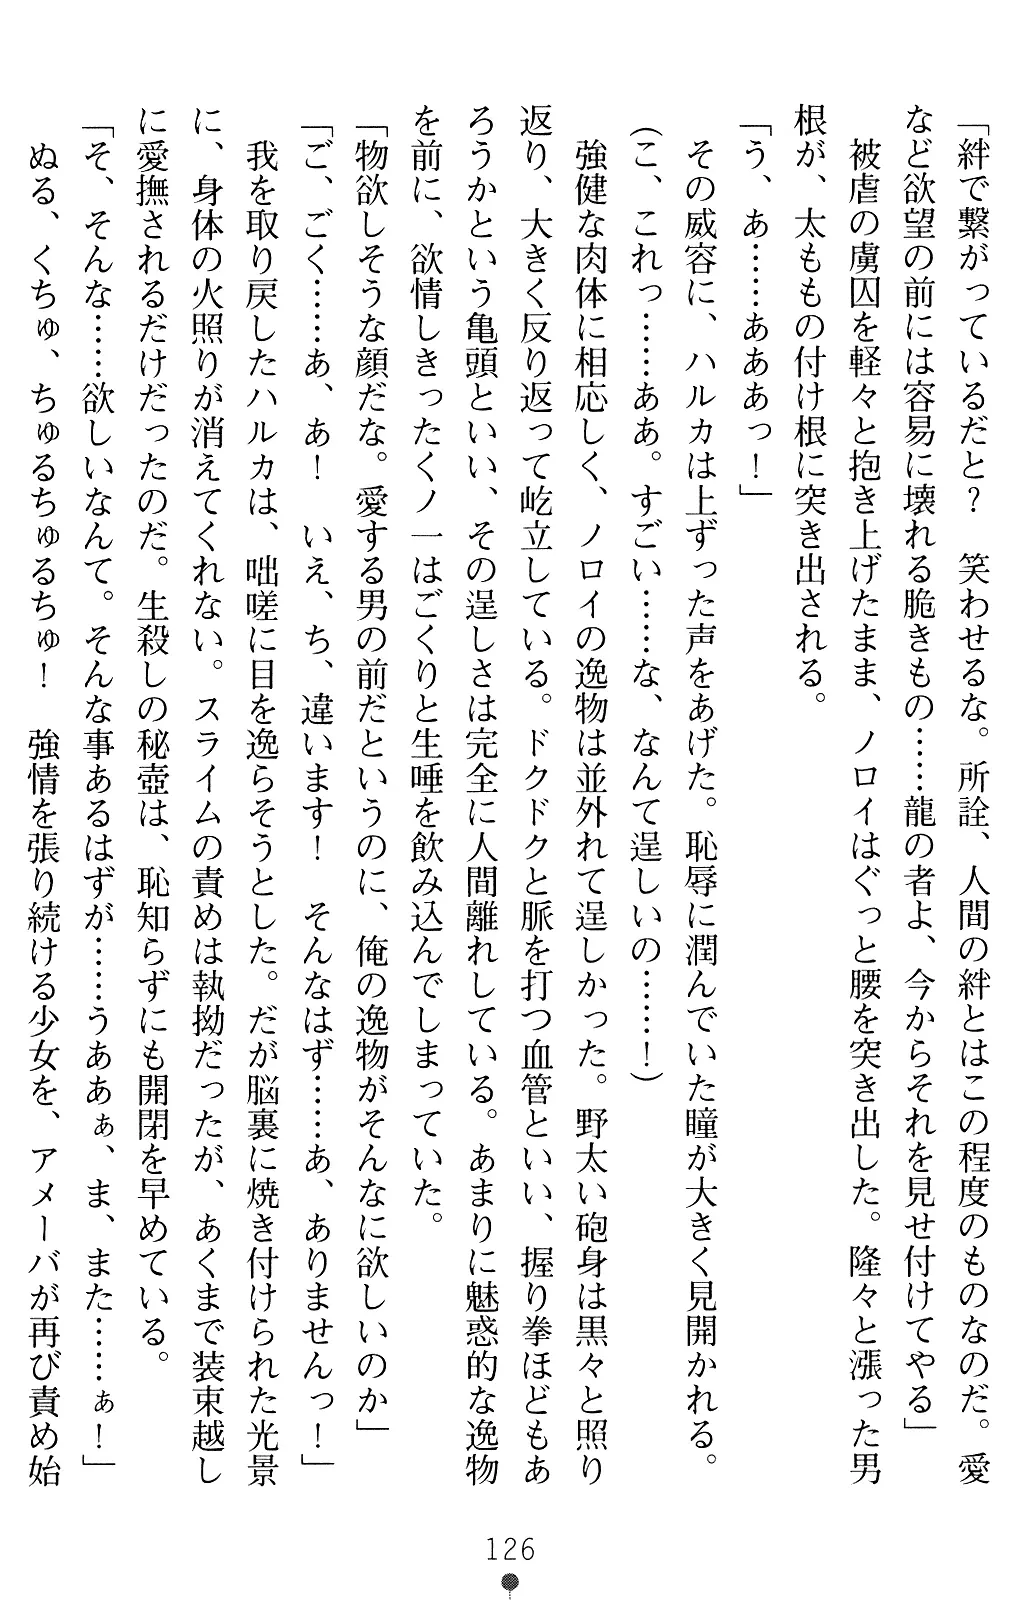 「絆で繋がっているだと？　笑わせるな。所詮、人間の絆とはこの程度のものなのだ。愛
など欲望の前には容易に壊れる脆きもの……龍の者よ、今からそれを見せ付けてやる」
　被虐の虜囚を軽々と抱き上げたまま、ノロイはぐっと腰を突き出した。隆々と漲った男
根が、太ももの付け根に突き出される。
「う、あ……あああっ！」
　その威容に、ハルカは上ずった声をあげた。恥辱に潤んでいた瞳が大きく見開かれる。
（こ、これっ……ああ。すごい……な、なんて逞しいの……！）
　強健な肉体に相応しく、ノロイの逸物は並外れて逞しかった。野太い砲身は黒々と照り
返り、大きく反り返って屹立している。ドクドクと脈を打つ血管といい、握り拳ほどもあ
ろうかという亀頭といい、その逞しさは完全に人間離れしている。あまりに魅惑的な逸物
を前に、欲情しきったくノ一はごくりと生唾を飲み込んでしまっていた。
「物欲しそうな顔だな。愛する男の前だというのに、俺の逸物がそんなに欲しいのか」
「ご、ごく……あ、あ！　いえ、ち、違います！　そんなはず……あ、ありませんっ！」
　我を取り戻したハルカは、咄嗟に目を逸らそうとした。だが脳裏に焼き付けられた光景
に、身体の火照りが消えてくれない。スライムの責めは執拗だったが、あくまで装束越し
に愛撫されるだけだったのだ。生殺しの秘壺は、恥知らずにも開閉を早めている。
「そ、そんな……欲しいなんて。そんな事あるはずが……うあぁ、ま、また……ぁ！」
　ぬる、くちゅ、ちゅるちゅるちゅ！　強情を張り続ける少女を、アメーバが再び責め始
126